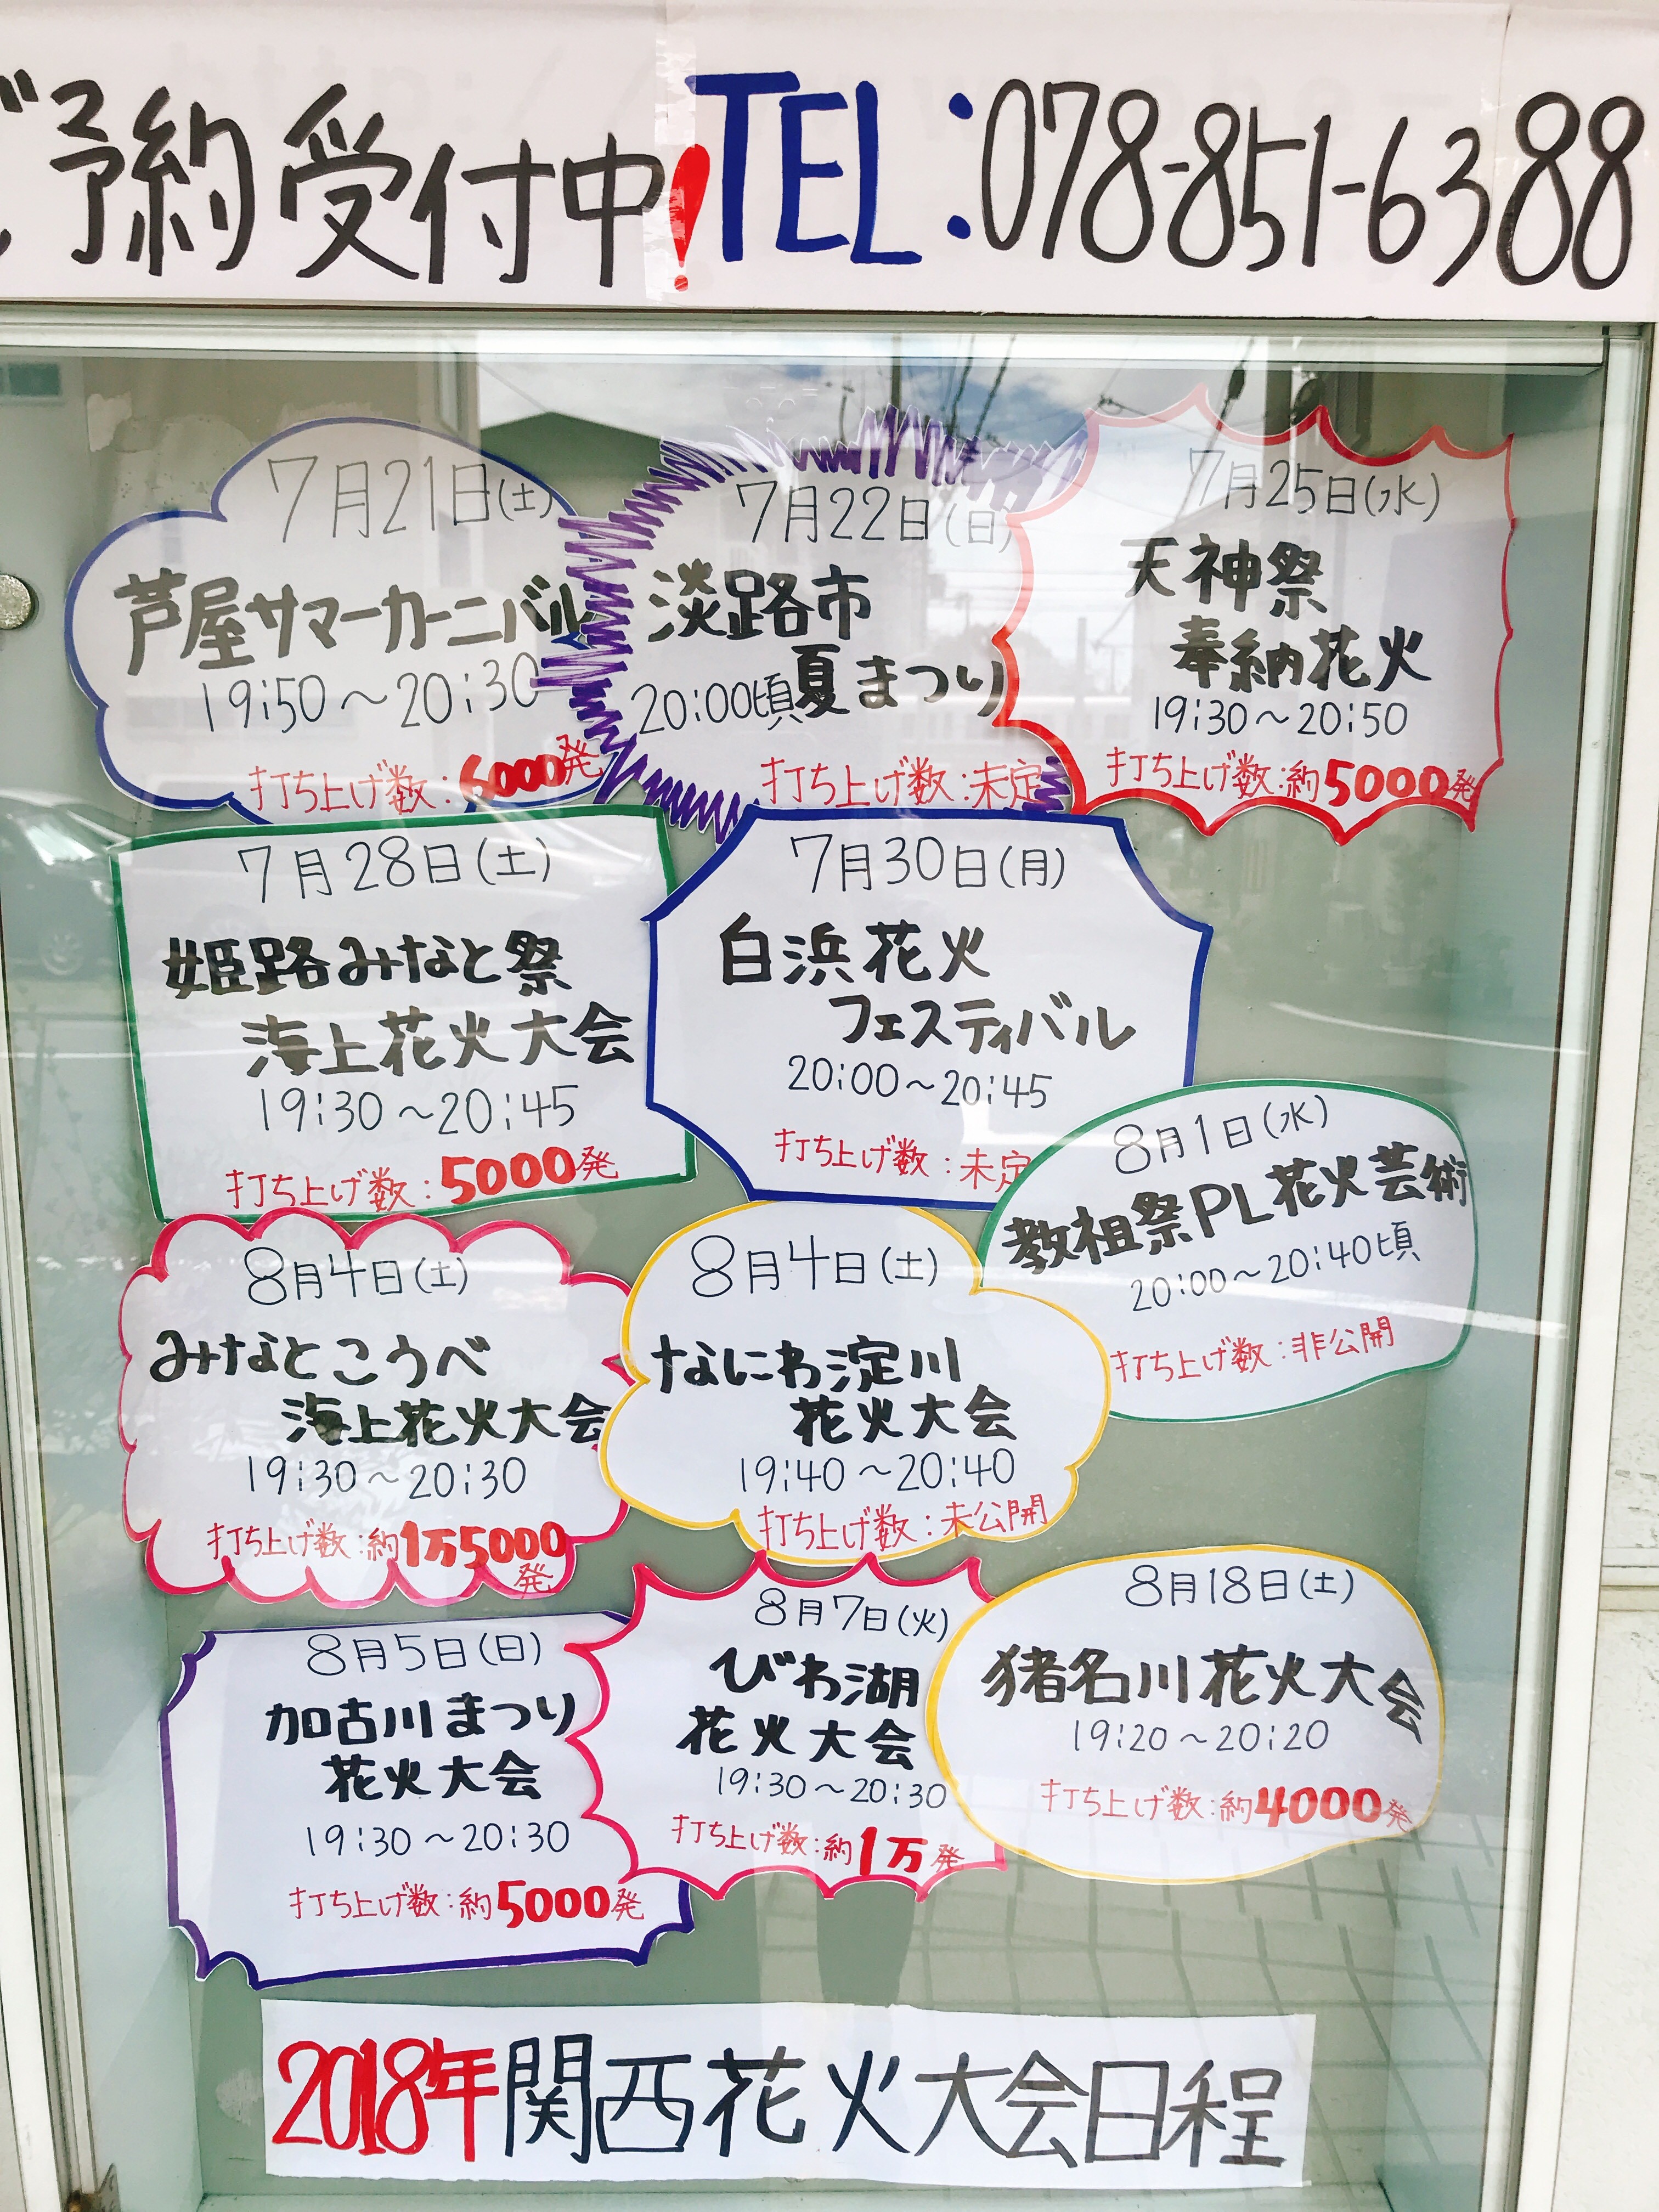 ご予約受付中!TEL:078-851-6388
7月21日(土)
芦屋サマーカーニバル
19:50～20:30
打ち上げ数:6000発
7月22日(日)
淡路市
夏まつり
20:00頃
打ち上げ数:未定
7月25日(水)
天神祭
奉納花火
19:30～20:50
打ち上げ数:約5000発
7月28日(土)
姫路みなと祭
海上花火大会
19:30～20:45
打ち上げ数:5000発
7月30日(月)
白浜花火
フェスティバル
20:00～20:45
打ち上げ数:未定
8月1日(水)
教祖祭PL花火芸術
20:00～20:40頃
打ち上げ数:非公開
8月4日(土)
みなとこうべ
海上花火大会
19:30～20:30
打ち上げ数:約1万5000
発
8月4日(土)
なにわ淀川
花火大会
19:40～20:40
打ち上げ数:未公開
8月5日(日)
加古川まつり
花火大会
19:30～20:30
打ち上げ数:約5000発
8月7日(火)
びわ湖
花火大会
19:30～20:30
打ち上げ数:約1万発
8月18日(土)
猪名川花火大会
19:20～20:20
打ち上げ数:約4000発
2018年関西花火大会日程